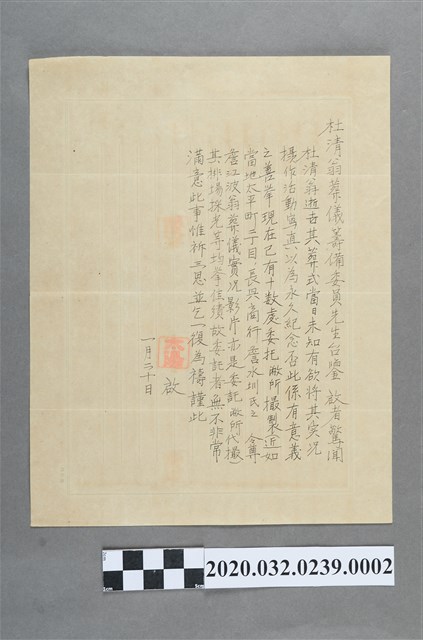 杜清翁葬儀籌備委員先生台鑒 啟者驚聞
杜清翁逝去其葬式當日未知有欲將其实況
撮作活動寫真以為永久紀念否此係有意義
之善举現在已有十数處委托敝所撮製近如
當地太平町二丁目長興商行詹水圳氏之令尊
詹江波翁葬儀實況影片亦是委託敝所代撮
其排場採光等均拳佳績故委託者無不非常
滿意此事惟祈三思並乞一復為禱謹此
啟
一月二十日
5cm
1cm
2020.032.0239.0002